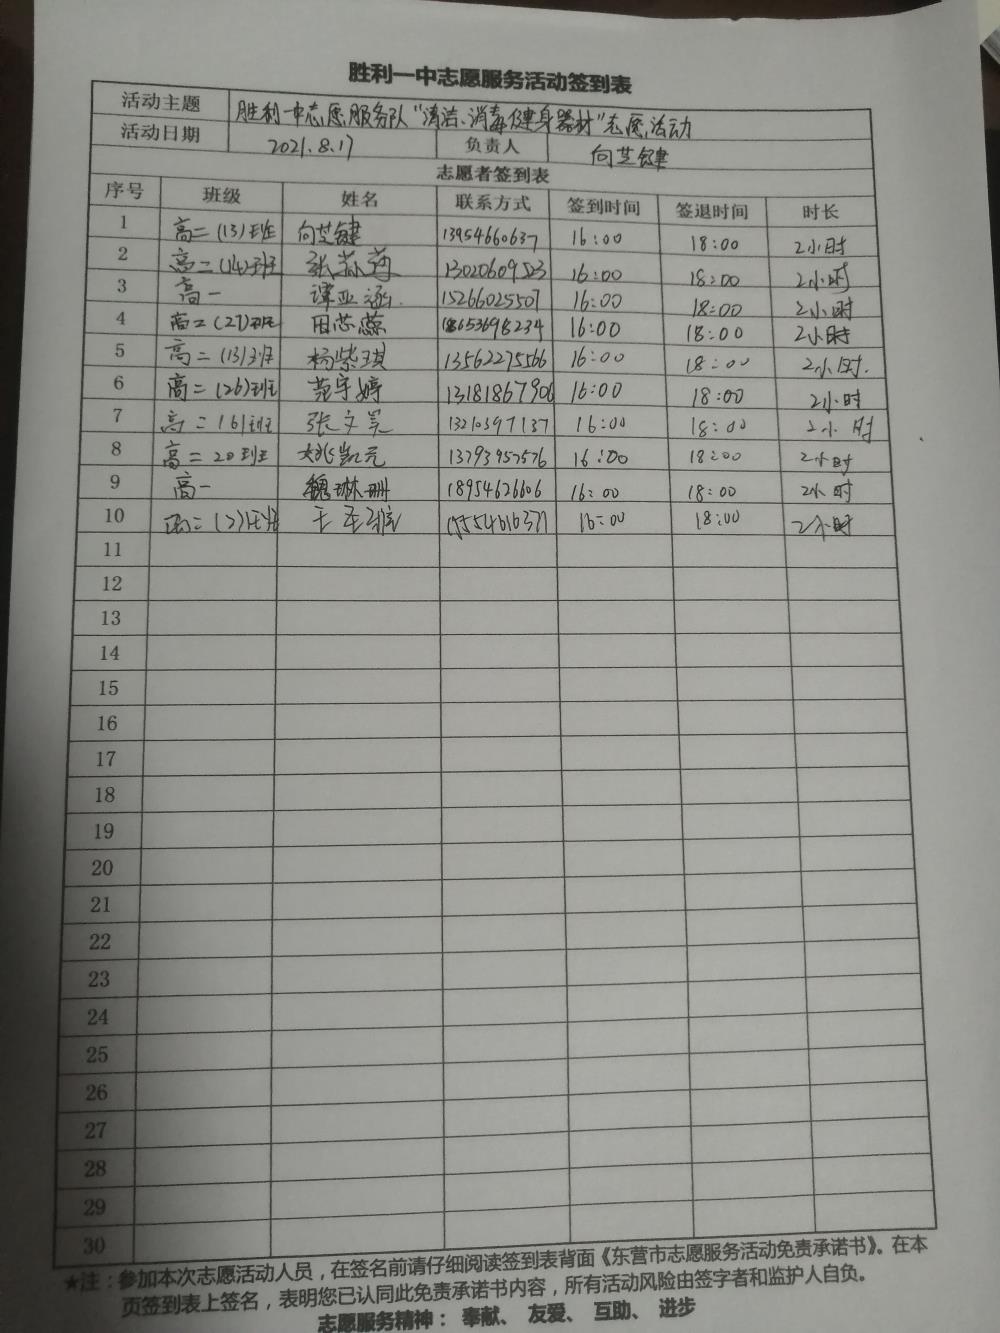 胜利一中志愿服务活动签到表
活动主题 胜利一中志愿服务队“清洁、消毒健身器材”志愿活动
活动日期 2021.8.17 负责人 向芝键
志愿者签到表
序号 班级 姓名 联系方式 签到时间 签退时间 时长
1 高二(13)班 向芝键 13954660637 16:00 18:00 2小时
2 高二(14)班 张 13020609523 16:00 18:00 2小时
3 高一 谭亚涵 15266025507 16:00 18:00 2小时
4 高二(27)班 田芯蕊 18653698234 16:00 18:00 2小时
5 高二(13)班 杨紫琪 13562275566 16:00 18:00 2小时.
6 高二(26)班 范宇婷 13181867906 16:00 18:00 2小时
7 高二16班 张文昊 13210397137 16:00 18:00 2小时
8 高二20班 姚凯元 13793957576 16:00 18:00 2小时
9 高一 魏琳珊 18954626606 16:00 18:00 2小时
10 高二(2)班 王 16:00 18:00 2小时
11
12
13
14
15
16
17
18
19
20
21
22
23
24
25
26
27
28
29
30
★注：参加本次志愿活动人员，在签名前请仔细阅读签到表背面《东营市志愿服务活动免责承诺书》。在本
页签到表上签名，表明您已认同此免责承诺书内容，所有活动风险由签字者和监护人自负。
志愿服务精神： 奉献、 友爱、 互助、 进步